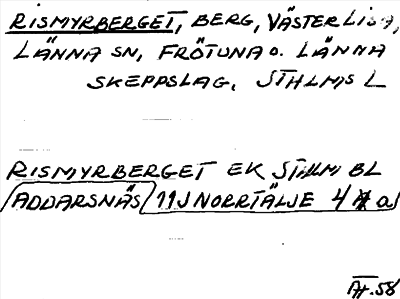 RISMYRBERGET, BERG, VÄSTER LISA,
LÄNNA SN, FRÖTUNA O. LÄNNA
SKEPPSLAG, STHLMS L
RISMYRBERGET EK STHLM BL
ADDARSNÄS 11J NORRTÄLJE 4 a
AH.58